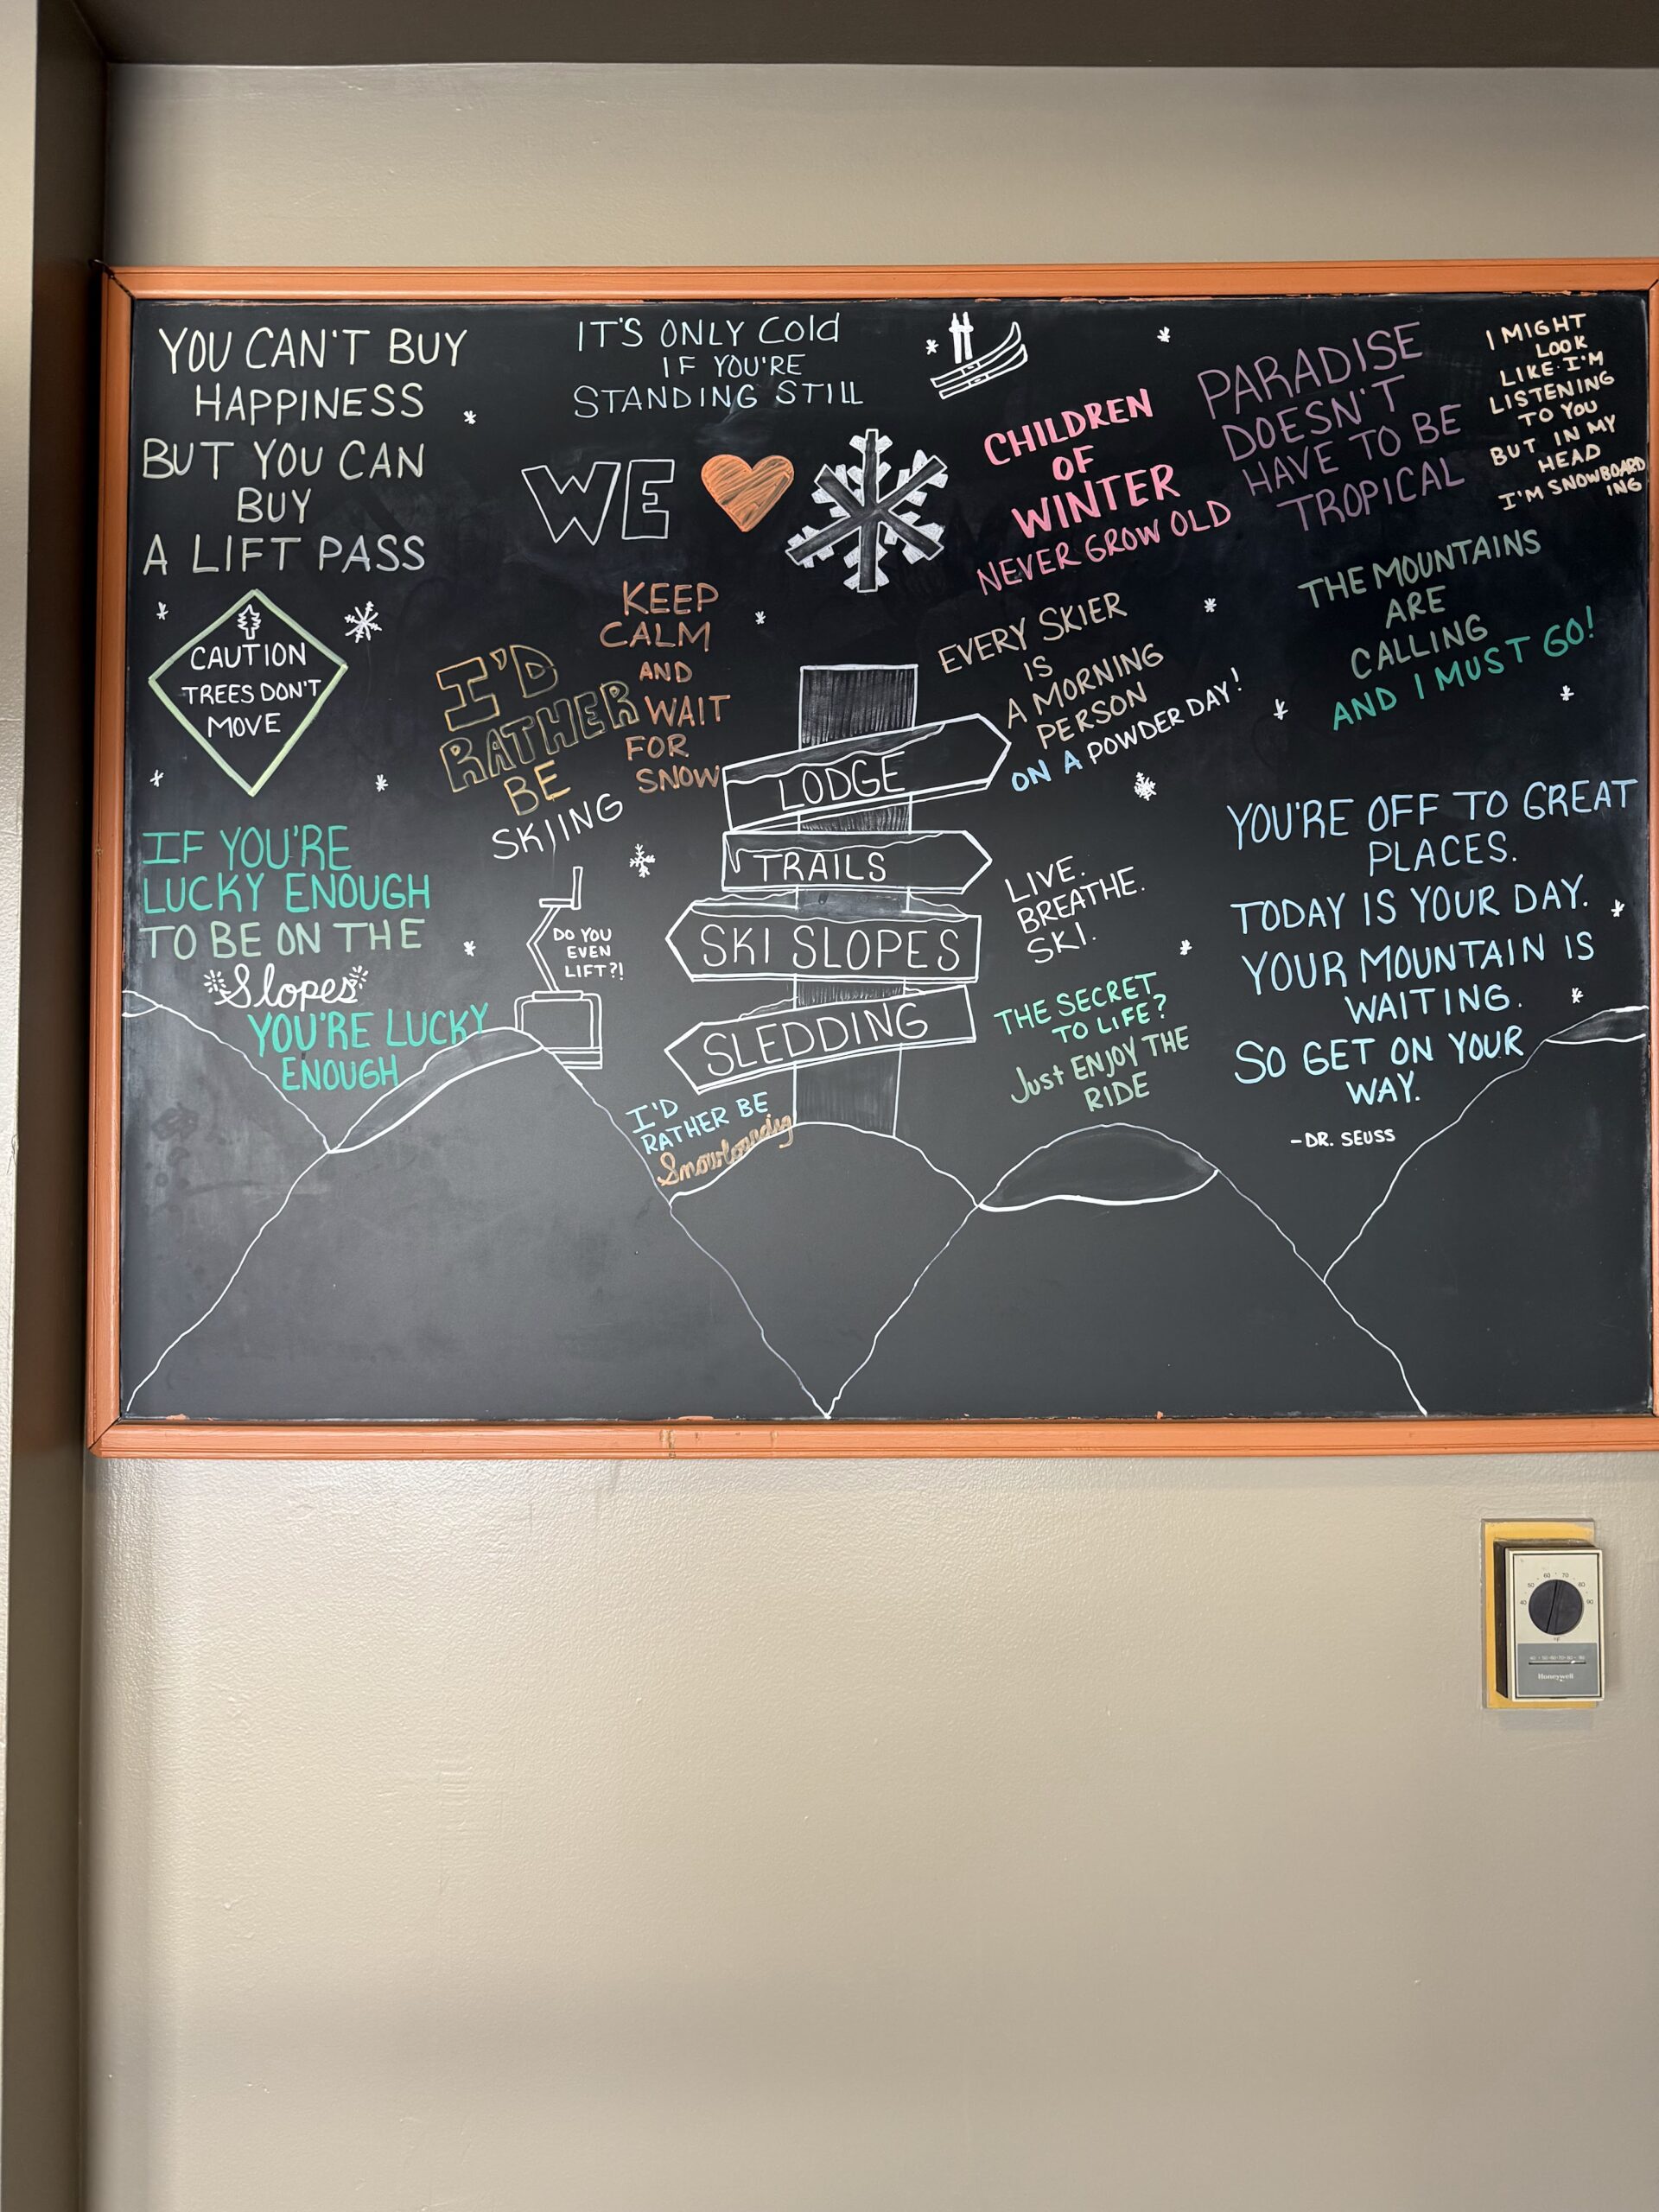 YOU CAN'T BUY
HAPPINESS
BUT YOU CAN
BUY
A LIFT PASS
IT'S ONLY Cold
IF YOU'RE
STANDING STILL
WE
CHILDREN
OF
WINTER
NEVER GROW OLD
PARADISE
DOESN'T
HAVE TO BE
TROPICAL
I MIGHT
LOOK
LIKE I'M
LISTENING
TO YOU
BUT IN MY
HEAD
I'M SNOWBOARD
ING
CAUTION
TREES DON'T
MOVE
I'D
RATHER
BE
SKIING
KEEP
CALM
AND
WAIT
FOR
SNOW
EVERY SKIER
IS
A MORNING
PERSON
ON A POWDER DAY!
THE MOUNTAINS
ARE
CALLING
AND I MUST GO!
IF YOU'RE
LUCKY ENOUGH
TO BE ON THE
Slopes
YOU'RE LUCKY
ENOUGH
DO YOU
EVEN
LIFT?!
LODGE
TRAILS
SKI SLOPES
SLEDDING
LIVE.
BREATHE.
SKI.
THE SECRET
TO LIFE?
Just ENJOY THE
RIDE
I'D
RATHER BE
YOU'RE OFF TO GREAT
PLACES.
TODAY IS YOUR DAY.
YOUR MOUNTAIN IS
WAITING.
SO GET ON YOUR
WAY.
-DR. SEUSS
40 50 60 70 80 90
°F
Honeywell